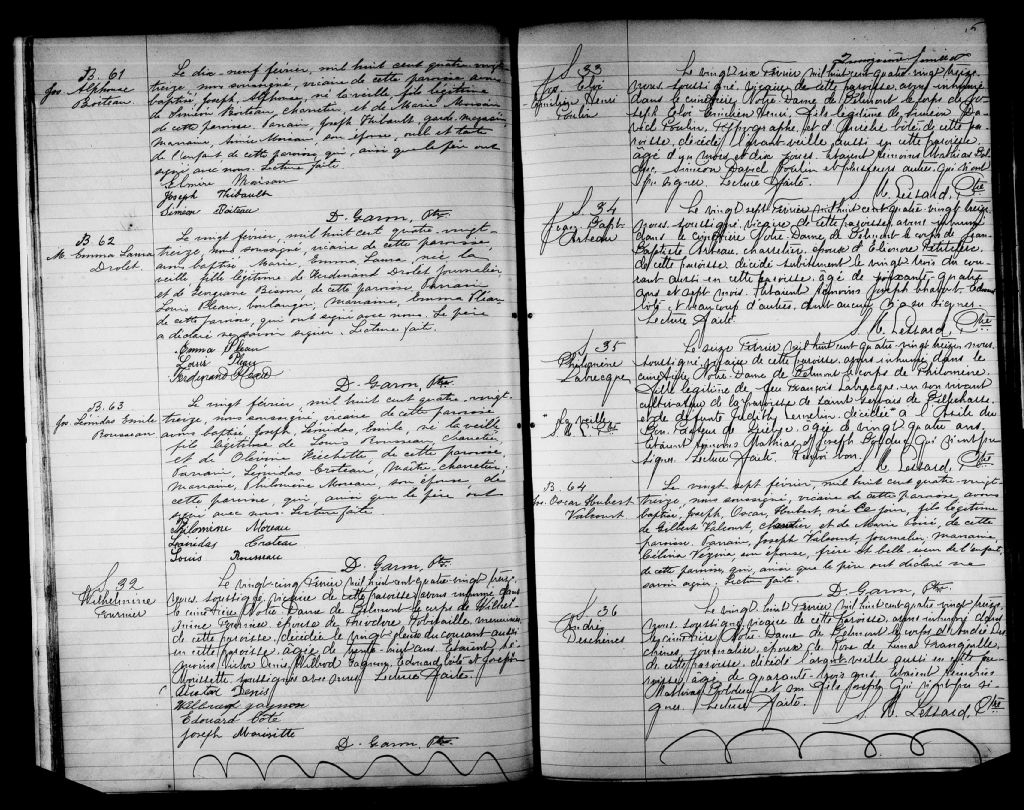 B. 61
Jos. Alphonse
Boiteau
Le dix-neuf février, mil huit cent quatre-vingt
treize, nous soussigné, vicaire de cette paroisse avons
baptisé, Joseph, Alphonse, né la veille, fils légitime
de Siméon Boiteau, charretier, et de Marie Moisan
de cette paroisse. Parrain, Joseph Thibault, garde-magasin,
Marraine, Moisan, son épouse, oncle et tante
de l'enfant de cette paroisse, qui, ainsi que le père ont
signé avec nous. Lecture faite
Elmire Moisan
Joseph Thibault
Simeon Boiteau
D. Garon, Ptre
B. 62
M. Emma Laura
Drolet
Le vingt février, mil huit cent quatre-vingt-
treize, nous soussigné, vicaire de cette paroisse
avons baptisé, Marie, Emma, Laura, née la
veille, fille légitime de Ferdinand Drolet Journalier,
et d' Bisson de cette paroisse, Parrain,
Louis Pleau, boulanger, marraine, Emma Pleau
de cette paroisse, qui ont signé avec nous. Le père
a déclaré ne savoir signer. Lecture fait.
Emma Pleau
Louis Pleau
Ferdinand
D. Garon, Ptre
B. 63
Jos. Léonidas Emile
Rousseau
Le vingt février, mil huit cent quatre-vingt-
treize, nous soussigné, vicaire de cette paroisse
avons baptisé, Joseph, Léonidas, Emile, né la veille
fils légitime de Louis Rousseau, charretier
et de Olivine Fréchette de cette paroisse,
Parrain, Léonidas Croteau, Maître charretier;
marraine, Philomène Moreau, son épouse, de
cette paroisse, qui, ainsi que le père ont
signé avec nous. Lecture faite.
Philomine Moreau
Léonidas Croteau
Louis Rousseau
D. Garon, Ptre
S. 32
Wilhelmine
Fournier
Le vingt-cinq Février mil huit cent quatre-vingt treize.
nous, soussigné, vicaire de cette paroisse, avons inhumé dans
le cimetière Notre Dame de Belmont le corps de Wilhel-
mine Fournier, épouse de Théodore Robitaille, menuisier,
de cette paroisse, décédée le vingt du courant aussi
en cette paroisse, âgée de trente-huit ans. Etaient té-
moins Victor Denis, Gagnon, Edouard Côté et Joseph
Morissette soussignés avec nous. Lecture faite.
Victor Denis
Wilbrod gagnon
Edouard Côté
joseph Morisitte
D. Garon, Ptre
S. 33
Jos. Eloi
Emilien Henri
Poulin
Le vingt six Février mil huit cent quatre vingt treize,
nous, soussigné, vicaire de cette paroisse, avons inhumé
dans le cimetière Notre-Dame de Belmont le corps de Jo-
seph Eloi Emilien Henri, fils légitime de Siméon Da-
vid Poulin, Typographe, et d' Côté de cette pa-
roisse, décédé l'avant-veille, aussi en cette paroisse,
âgé d'un mois et dix jours. Etaient témoins Mathias Bol-
duc, Siméon David Poulin et plusieurs autres, qui n'ont
pu signer. Lecture faite.
S. N. Lessard, Ptre
S. 34
Franç. Bapt.
Arteau
Le vingt sept Février mil huit cent quatre vingt treize,
nous, soussigné, vicaire de cette paroisse, avons inhumé
dans le cimetière Notre Dame de Belmont le corps de Jean
Baptiste Arteau, charretier, époux d' Eléonore
de cette paroisse, décédé subitement le vingt trois du cou-
rant aussi en cette paroisse, âgé de soixante-quatre
ans et sept mois. Etaient témoins Joseph
Côté, & beaucoup d'autres, dont aucun n'a pu signer.
Lecture faite.
S. N. Lessard, Ptre
S. 35
Philomène
Labrecque
"la veille"
S. N. L. Ptre
Le seize Février mil huit cent quatre vingt treize, nous,
soussigné, vicaire de cette paroisse, avons inhumé dans le
cimetière Notre-Dame de Belmont le corps de Philomène,
fille légitime de feu François Labrecque, en son vivant
cultivateur de la paroisse de Saint Gervais de Bellechasse,
et de défunte Judith Lemelin, décédée "à l'Asile du
Bon Pasteur de Québec, âgée de vingt quatre ans.
Etaient témoins Mathias & Joseph Bolduc, qui n'ont pu
signer. Lecture faite. Renvoi bon.
S. N. Lessard, Ptre
B. 64
Jos. Oscar Hubert
Valcourt
Le vingt sept février, mil huit cent quatre-vingt-
treize, nous soussigné, vicaire de cette paroisse, avons
baptisé, Joseph, Oscar, Hubert, né ce jour, fils légitime
de Gilbert Valcourt, et de Marie de cette
paroisse. Parrain, Joseph Valcourt, journalier, marraine,
Célina Vézina son épouse, frère et belle-soeur de l'enfant,
de cette paroisse, qui, ainsi que le père ont déclaré ne
savoir signer. Lecture faite.
D. Garon, Ptre
S. 36
André
Deschenes
Le vingt huit Février mil huit cent quatre vingt treize,
nous, soussigné, vicaire de cette paroisse, avons inhumé dans
le cimetière Notre Dame de Belmont le corps d'André Des-
chênes, journalier, époux de Rose de Lima Tranquille,
de cette paroisse, décédé l'avant veille aussi en cette pa-
roisse, âgé de quarante-trois ans. Etaient témoins
Mathias Bolduc et son fils Joseph, qui n'ont pu si-
gner. Lecture faite.
S. N. Lessard, Ptre